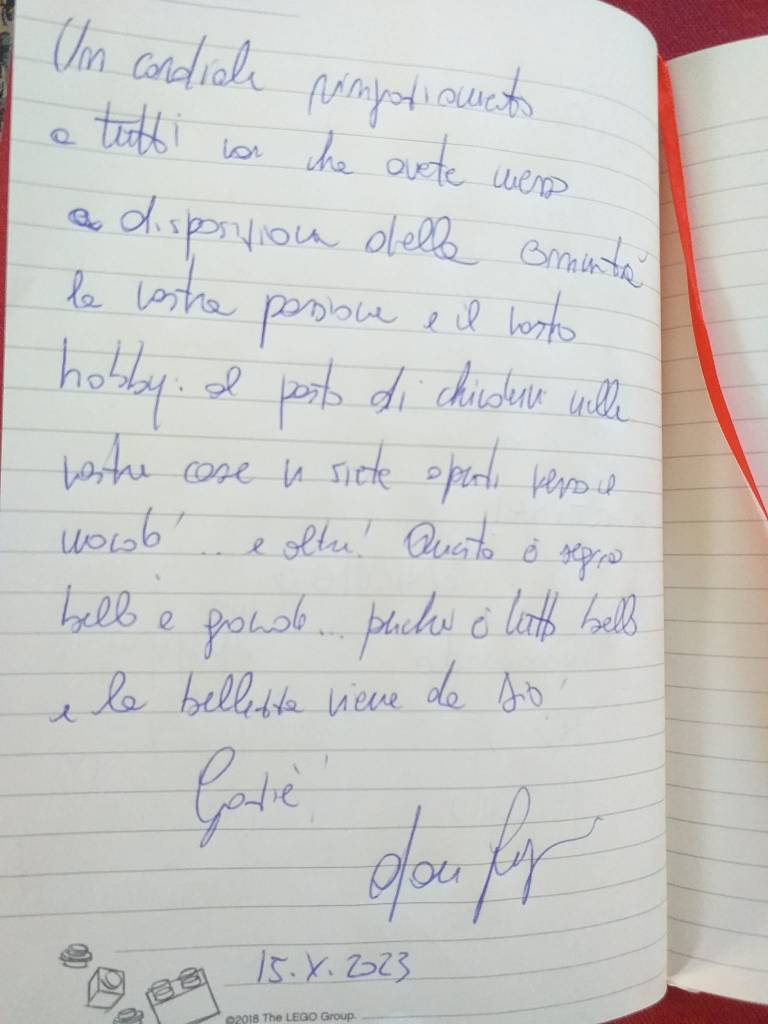 Un cordiale ringraziamento
a tutti voi che avete messo
a disposizione della comunità
la vostra passione e il vostro
hobby. al posto di chiudervi nelle
vostre case vi siete aperti verso il
mondo ... e oltre! Questo è segno
bello e grande... perché è tutto bello
e la bellezza viene da Dio!
Grazie!
don
15.X.2023
©2018 The LEGO Group.